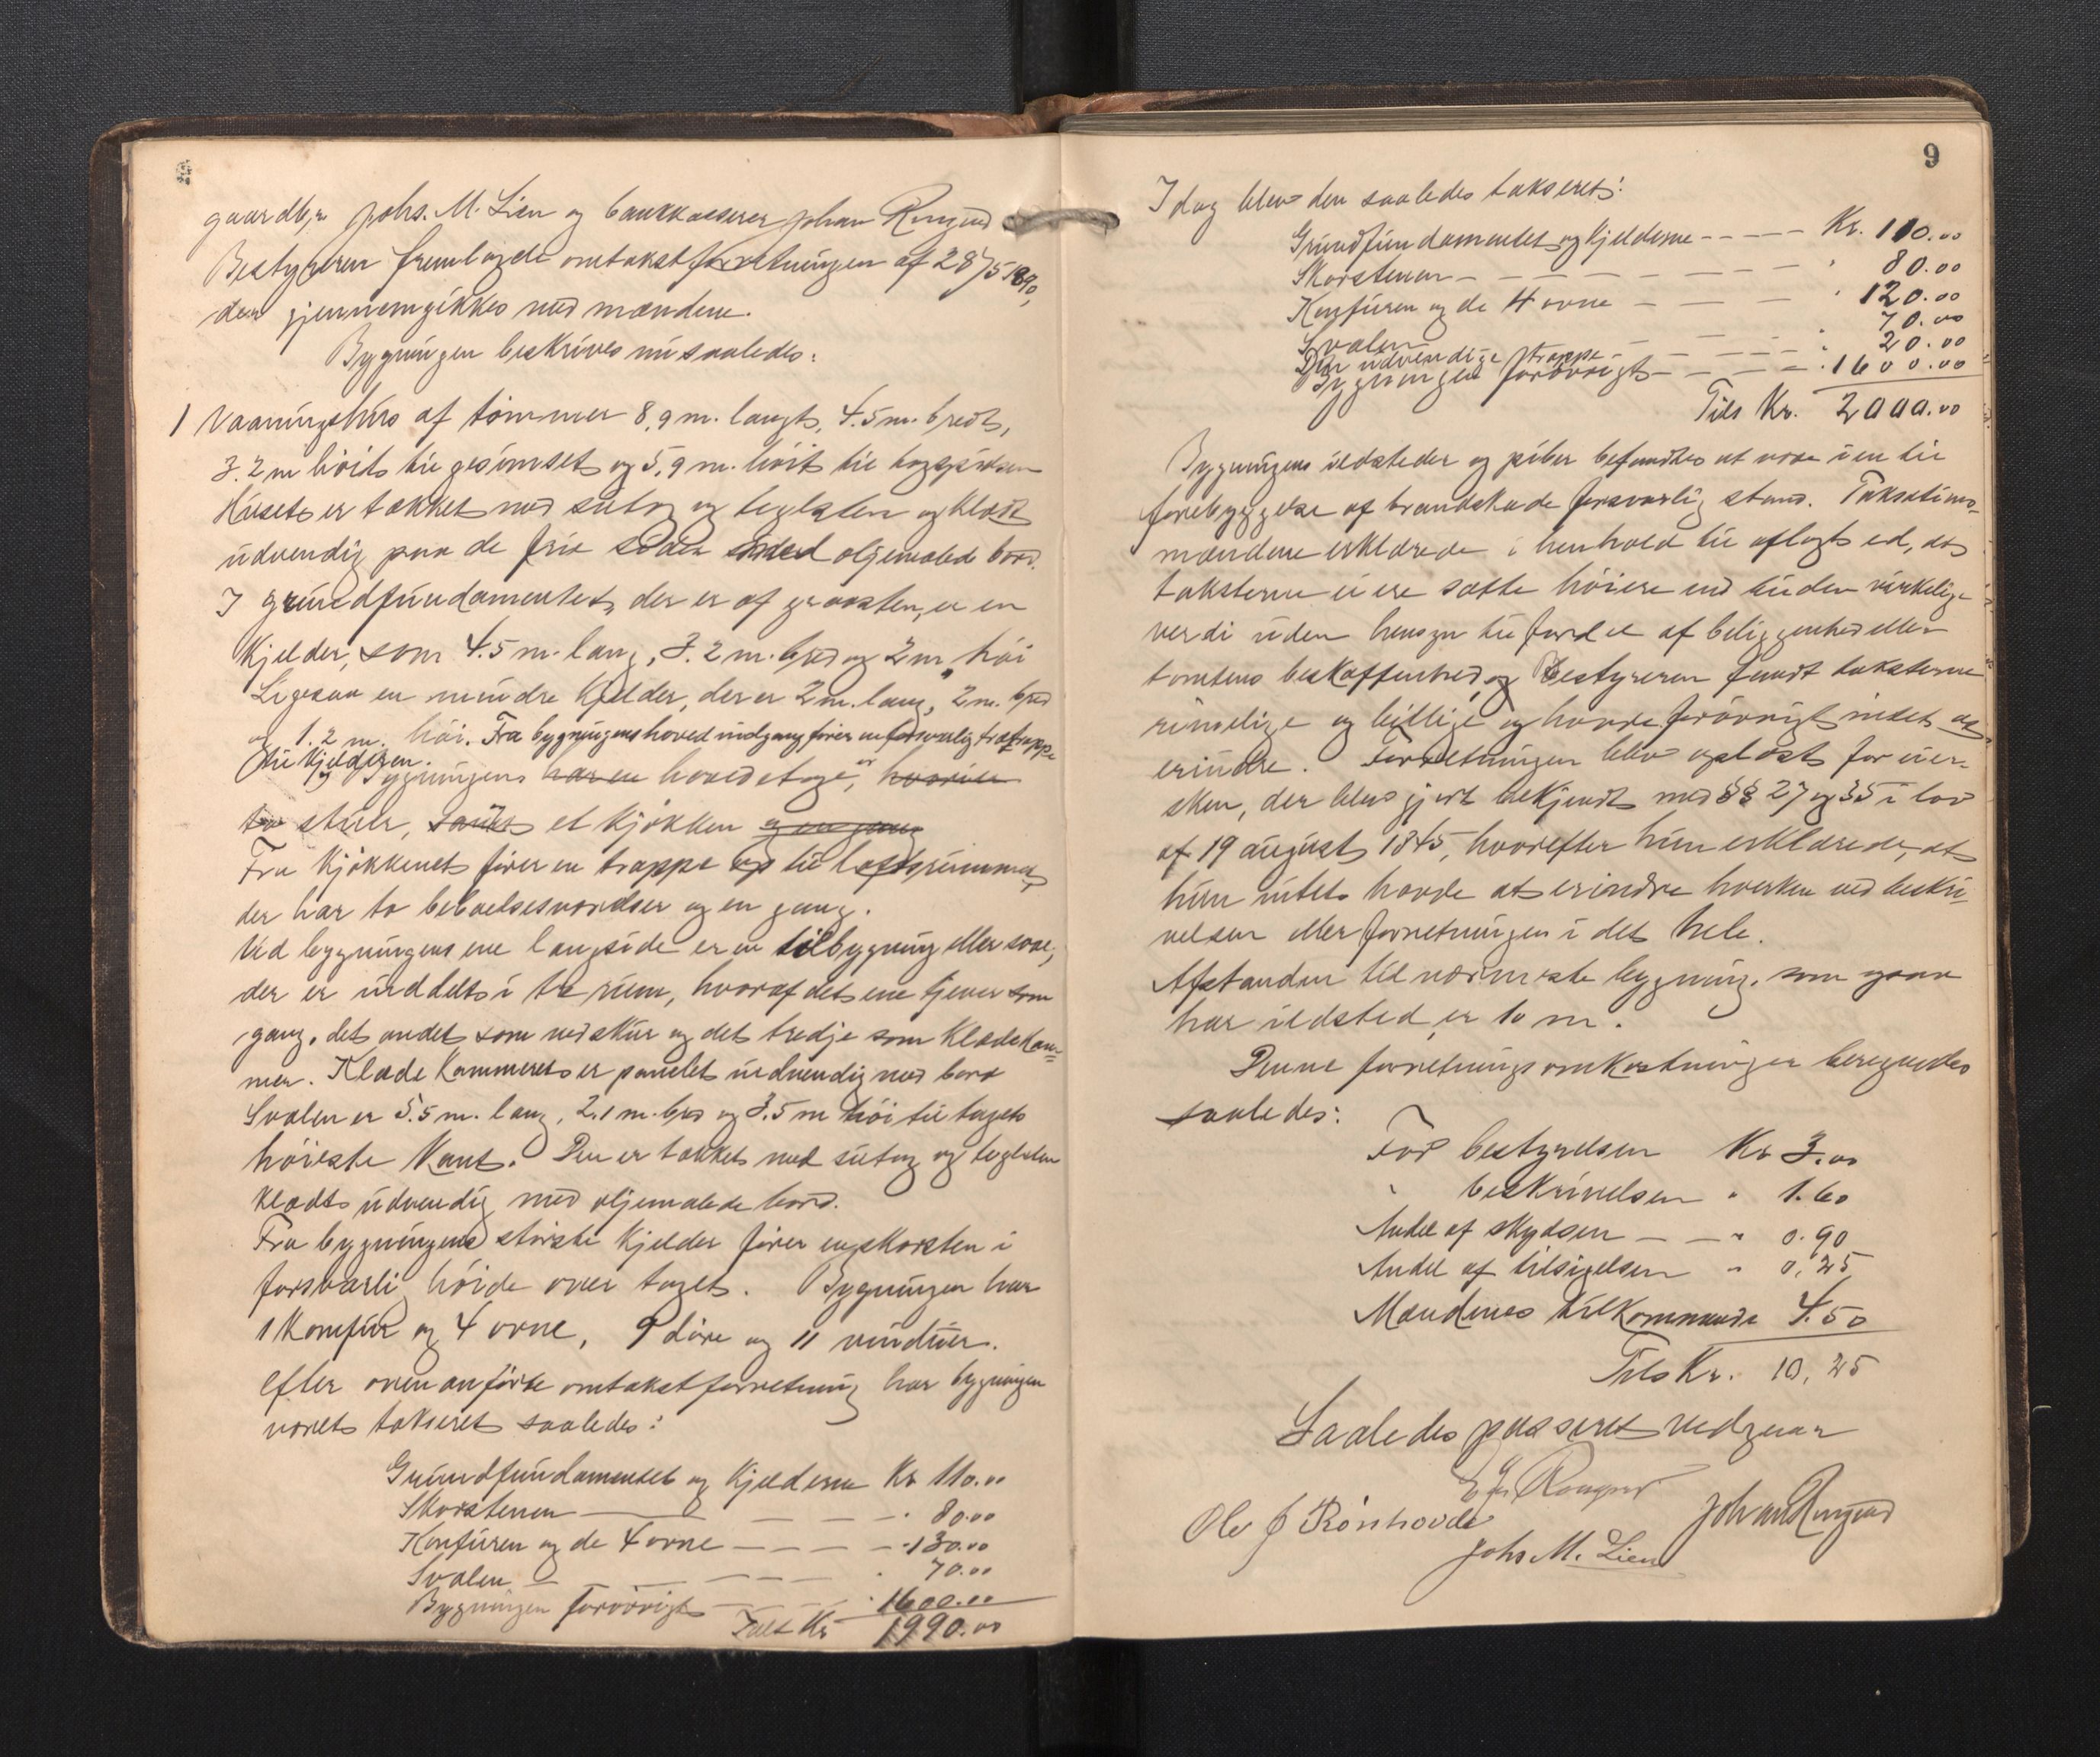 gaardbr. Johs. M. Lien og bankkasserer Johan Ringstad
Bestyreren fremlagde omtakstforretningen af 28/5 1890,
der gjennemgikkes med mændene.
Bygningen beskrives nu saaledes:
1 Vaaningshus af tømmer 8,9 m. langt, 4.5 m. bredt,
3.2 m høit til gesimset og 5,9 m. høit til
Huset er tækket med sutag og teglsten og klædt
udvendig paa de frie sider med oljemalede bord.
I grundfundamentet, der er af graasten, er en
kjelder, som 4.5 m. lang, 3.2 m. bred og 2 m. høi
Ligesaa en mindre kjelder, der er 2 m. lang, 2 m. bred
og 1.2 m. høi. Fra bygningens hovedindgang fører en forsvarlig trætrappe
til kjelderen.
Bygningens har en hovedetage, er hvori er
to stuer, samt et kjøkken og en gang
Fra kjøkkenet fører en trappe op til loftsrummet,
der har to beboelsesværelser og en gang.
Ved bygningens ene langside er en tilbygning eller sval,
der er inddelt i tre rum, hvoraf det ene tjener som
gang, det andet som vedskur og det tredje som klædekam=
mer. Klædekammeret er panelet indvendig med bord
Svalen er 5.5 m. lang, 2.1 m. bred og 3.5 m høi til tagets
høieste kant. Den er tækket med sutag og teglsten
klædt udvendig med oljemalede bord.
Fra bygningens største kjelder fører en skorsten i
forsvarlig høide over taget. Bygningen har
1 komfur og 4 ovne, 9 døre og 11 vinduer.
Efter ovenanførte omtakstforretning har bygningen
været takseret saaledes:
Grundfundamentet og kjelderne Kr 110.00
Skorstenen — — — " 80.00
Komfuren og de 4 ovne — — — " 130.00
Svalen — — — " 70.00
Bygningen forøvrigt — — " 1600.00
Tilst Kr 1990.00
9
Idag blev den saaledes takseret:
Grundfundamentet og kjelderne — — — Kr. 110.00
Skorstenen — — — — " 80.00
Komfuren og de 4 ovne — — — " 120.00
Svalen — — — " 70.00
Den udvendige trappe — — — " 20.00
Bygningen forøvrigt — — — " 1600.00
Tils Kr. 2000.00
Bygningens ildsteder og piber befandtes at være i en til
forebyggelse af brandskade forsvarlig stand. Taksations-
mændene erklærede i henhold til aflagt ed, at
taksterne ei ere satte høiere end til den virkelige
verdi uden hensyn til fordel af beliggenhed eller
tomtens beskaffenhed, og Bestyreren fandt taksterne
rimelige og billige og havde forøvrigt intet at
erindre. Forretningen blev oplæst for eier-
sken, der blev gjort bekjendt med §§ 27 og 35 i lov
af 19 august 1845, hvorefter hun erklærede, at
hun intet havde at erindre hverken ved beskri-
velsen eller forretningen i det hele.
Afstanden til nærmeste bygning, som
har ildsted er 10 m.
Denne forretnings omkostninger beregnedes
saaledes:
For bestyrelsen Kr 3.00
" beskrivelsen " 1.60
Andel af skydsen — — " 0.90
Andel af tilsigelsen " 0,25
Mændenes tilkommende 4.50
Tils Kr. 10,25
Saaledes passeret vedgaar
Ole J Rønhovde Johan Ringstad
Johs M. Lien